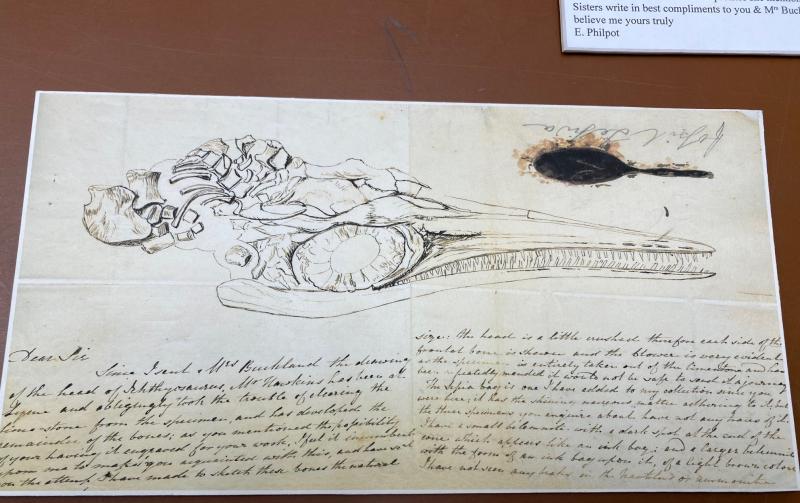 Sisters write in best compliments to you & Mrs Buc
believe me yours truly
E. Philpot
Fossil Sepia
Dear Sir
Since I sent Mrs Buckland the drawing
of the head of Ichthyosaurus, Mr Hawkins has been at
Lyme and obligingly took the trouble of clearing the
lime-stone from the specimen, and has developed the
remainder of the bones; as you mentioned the possibility
of your having it engraved for your work, I feel it incumbent
upon me to make you acquainted with this, and have sat
on the attempt, I have made to sketch these bones the natural
size: the head is a little crushed therefore each side of the
frontal bone is shown and the blower is very evident
as the specimen is entirely taken out of the limestone and has
been repeatedly mended it would not be safe to send it a journey
The sepia bag is one I have added to my collection since you
were here; it has the shining nacreous matter adhering to it, but
the three specimens you enquire about have not any traces of it.
I have a small belemnite with a dark spot at the end of the
cone which appears like an ink bag; and a larger belemnite
with the form of an ink bag upon it, of a light brown colour
I have not seen any beaks in the nautilus or ammonites